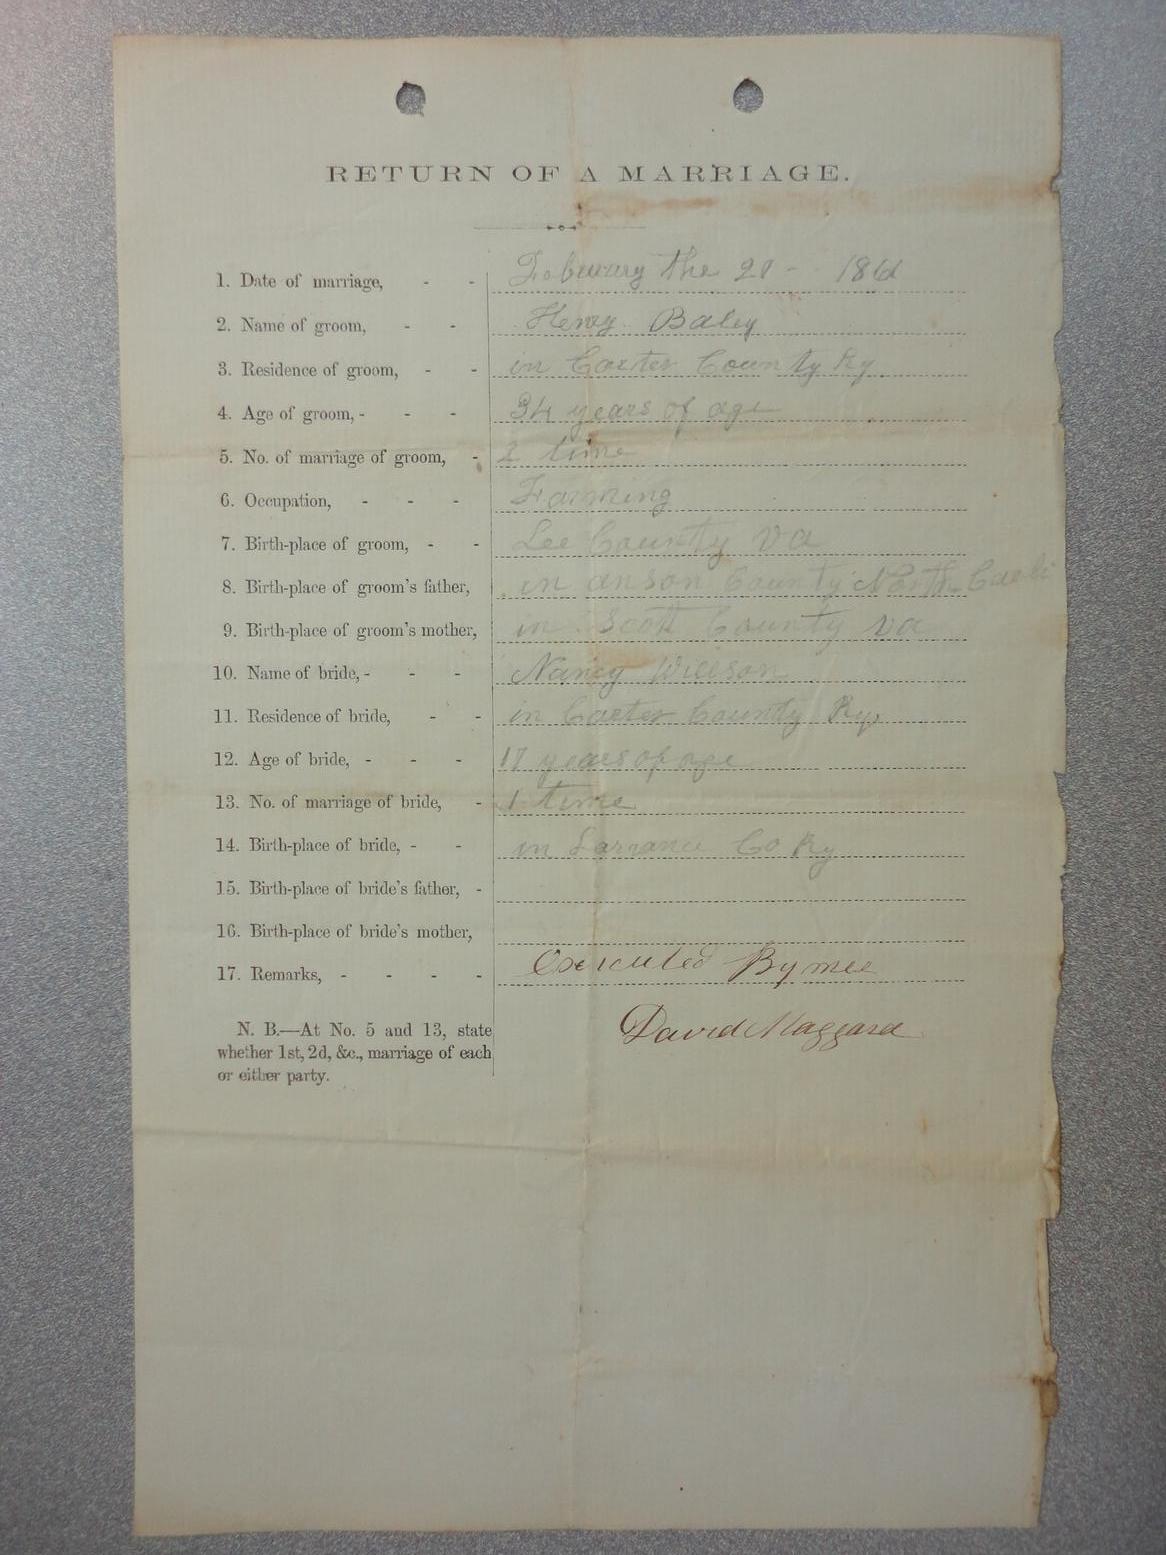 RETURN OF A MARRIAGE.
1. Date of marriage, - - Febuary the 20 - 186
2. Name of groom, - - Henry Baley
3. Residence of groom, - - in Carter County Ky
4. Age of groom, - - - 34 years of age
5. No. of marriage of groom, - 2 time
6. Occupation, - - - Farming
7. Birth-place of groom, - - Lee County Va
8. Birth-place of groom's father, in anson County North
9. Birth-place of groom's mother, in Scott County va
10. Name of bride, - - - Nancy Willson
11. Residence of bride, - - in Carter County Ky
12. Age of bride, - - - 17 years of age
13. No. of marriage of bride, - 1 time
14. Birth-place of bride, - - in Larrance Co Ky
15. Birth-place of bride's father, -
16. Birth-place of bride's mother,
17. Remarks, - - - - Executed By mee
David Maggard
N. B.—At No. 5 and 13, state
whether 1st, 2d, &c., marriage of each
or either party.